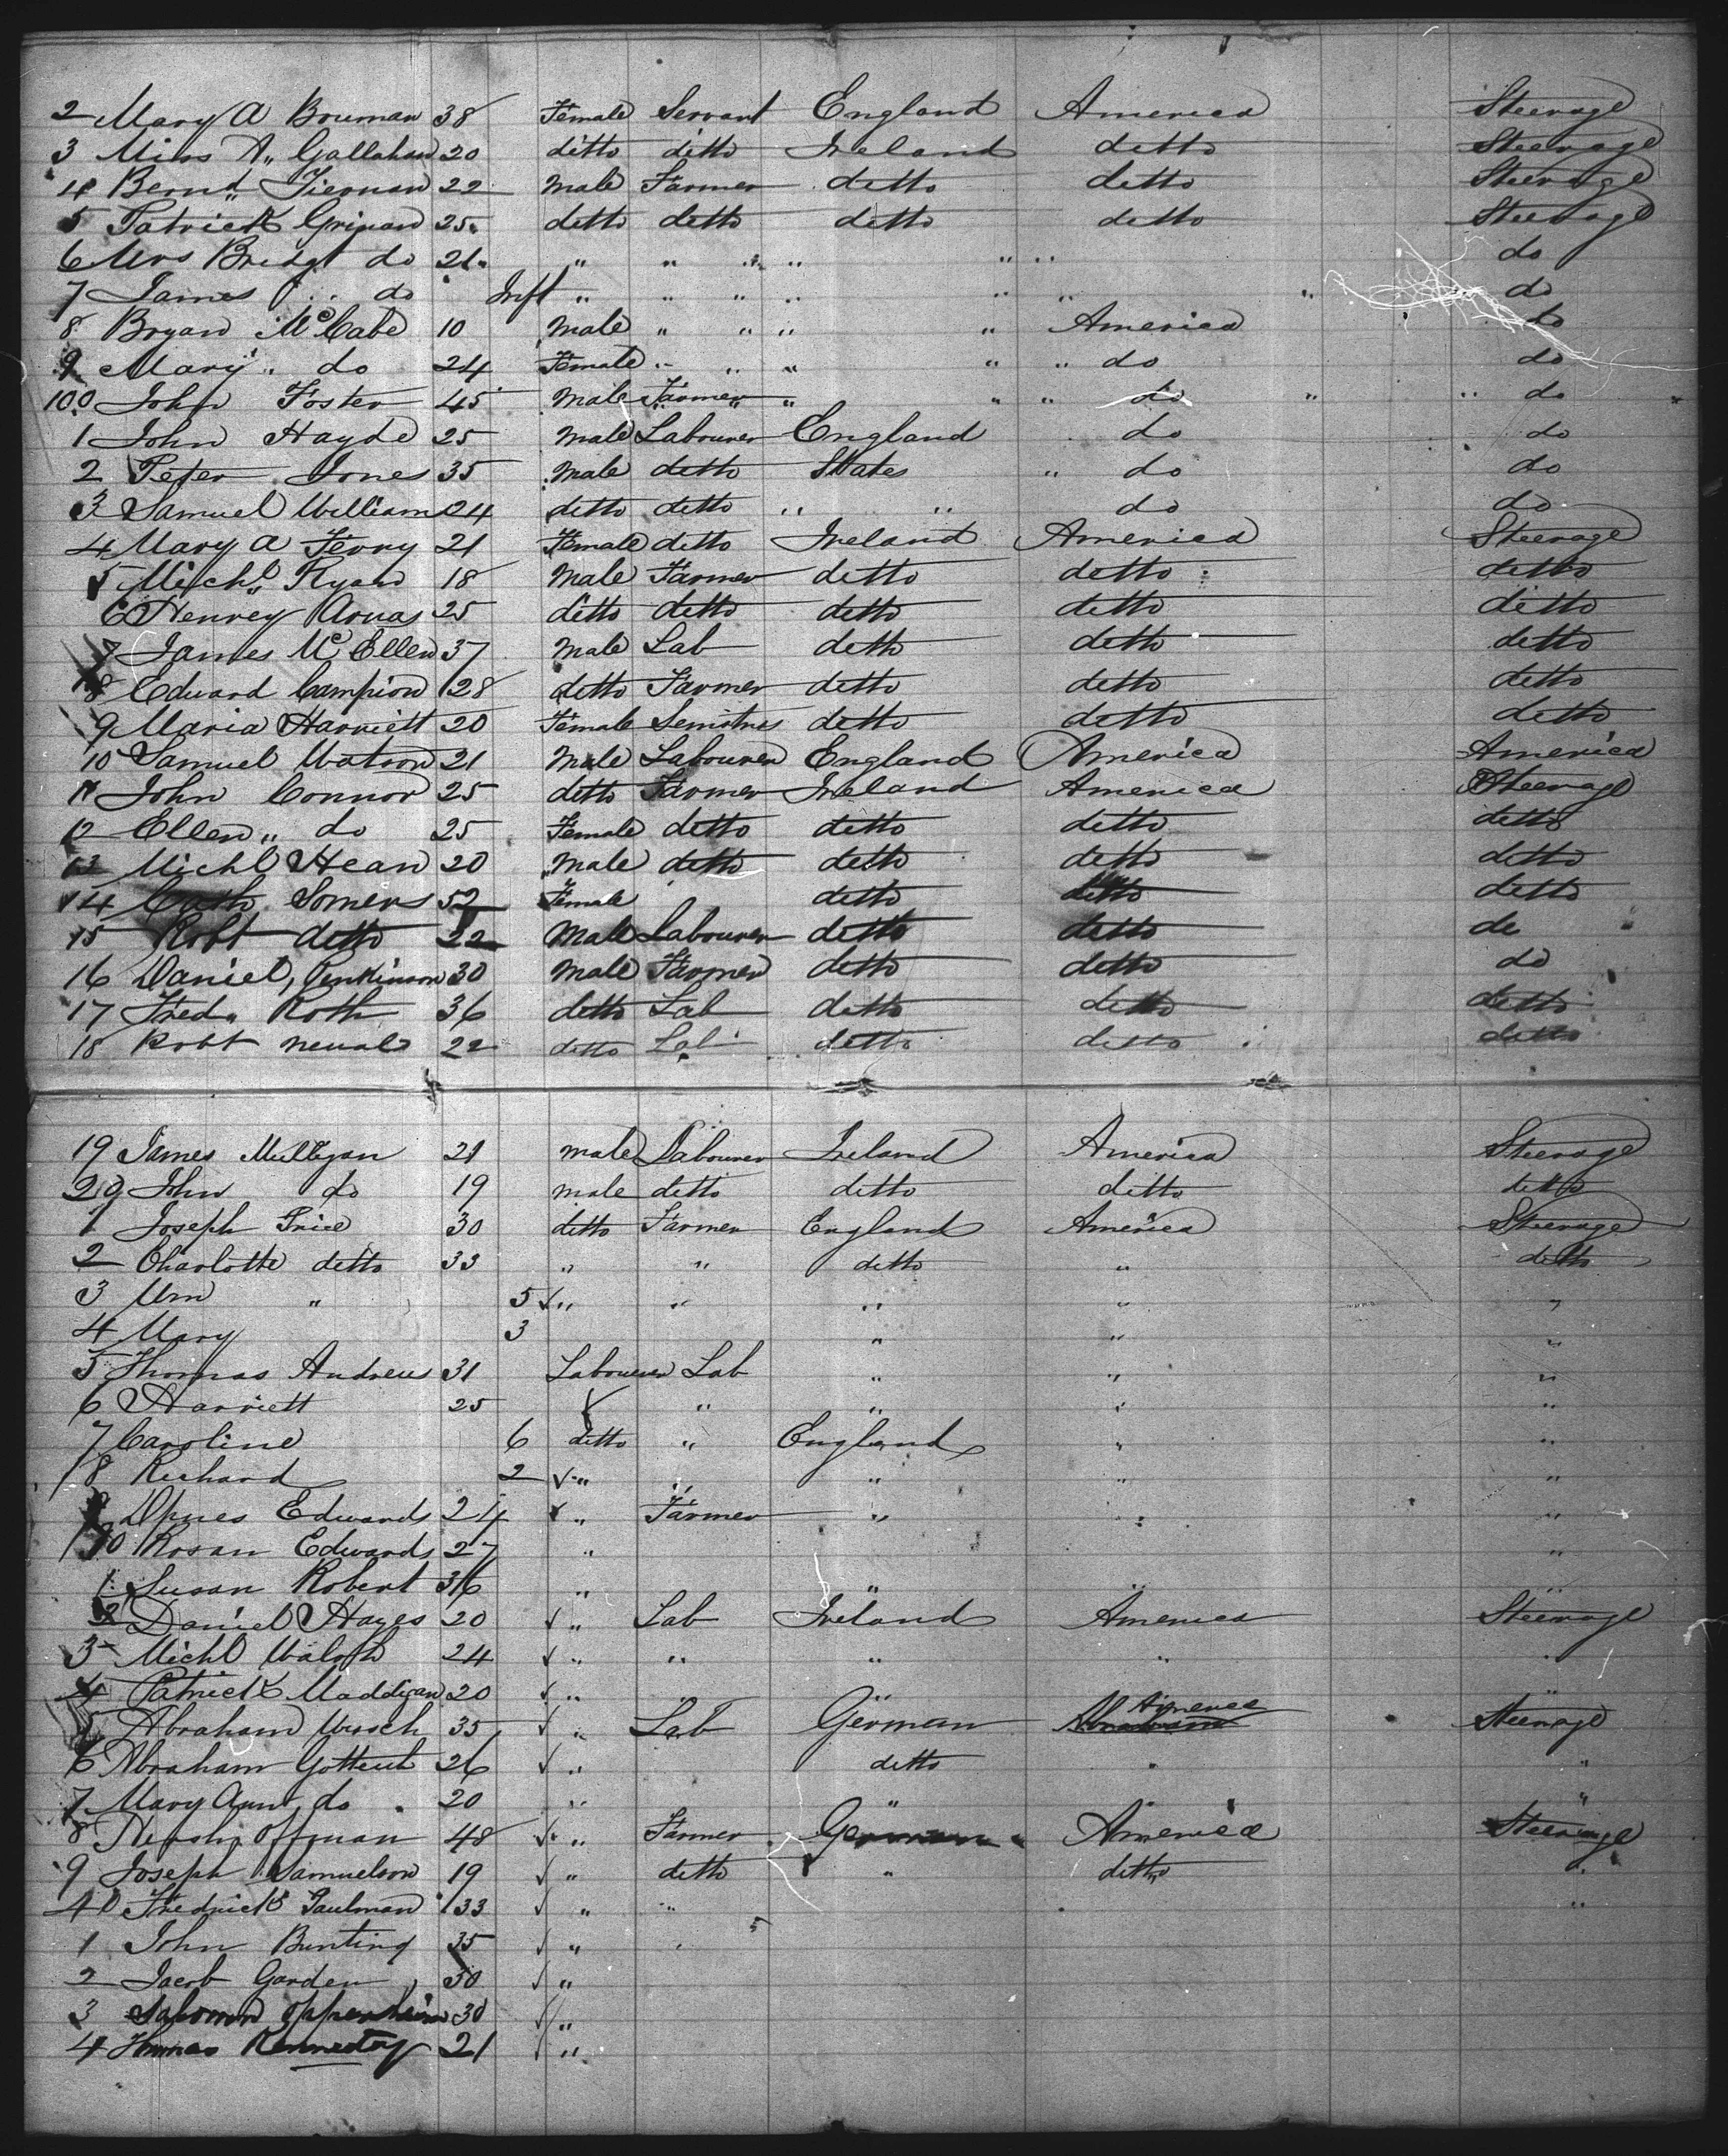 2 Mary A Bowman 38 Female Servant England America Steerage
3 Miss A,, Gallahan 20 ditto ditto Ireland ditto Steerage
4 Bernd,, Tiernan 22 male Farmer ditto ditto Steerage
5 Patrick Grinan 25 ditto ditto ditto ditto Steerage
6 Mrs Bridgt do 21 " " " " " " do
7 James " do Inft " " " " " " " do
8 Bryan McCabe 10 male " " " " America do
9 Mary " do 24 Female " " " " " do do
100 John Foster 45 male Farmer " " " do " " do "
1 John Hayde 25 male Labourer England do do
2 Peter Jones 35 male ditto States " do do
3 Samuel William 24 ditto ditto " " do do
4 Mary A Terry 21 Female ditto Ireland America Steerage
5 Michl,, Ryan 18 male Farmer ditto ditto ditto
6 Henrey 25 ditto ditto ditto ditto ditto
7 James McEllen 37 male Lab ditto ditto ditto
8 Edward Campion 28 ditto Farmer ditto ditto ditto
9 Maria Harriett 20 Female Semstres ditto ditto ditto
10 Samuel Watson 21 male Labourer England America America
11 John Connor 25 ditto Farmer Ireland America Steerage
12 Ellen,, do 25 Female ditto ditto ditto ditto
13 Michl Hean 20 male ditto ditto ditto ditto
14 Cath Somers 52 Female ditto ditto ditto
15 Robt ditto 22 male Labourer ditto ditto do
16 Daniel, Jenkinson 30 male Farmer ditto ditto do
17 Fred,, Roth 36 ditto Lab ditto ditto ditto
18 Robt 22 ditto Lab ditto ditto ditto
19 James Mulligan 21 male Labourer Ireland America Steerage
20 John do 19 male ditto ditto ditto ditto
1 Joseph Price 30 ditto Farmer England America Steerage
2 Charlotte ditto 33 " " ditto " ditto
3 Wm " 5 √ " " " " "
4 Mary 3 " " "
5 Thomas Andrew 31 Labourer Lab " " "
6 Harriett 25 √ " " " "
7 Caroline 6 ditto " England " "
8 Richard 2 √ " " " " "
9 Edwards 24 √ " Farmer " " "
30 Rosan Edwards 27 " "
1 Susan Robert 36 " " " "
2 Daniel Hayes 20 √ " Lab Ireland America Steerage
3 Michl Walsh 24 √ " " " " "
4 Patrick Maddigan 20 √ " " " " "
5 Abraham 35 √ " Lab German America Steerage
6 Abraham 26 √ " ditto " "
7 Mary Ann do 20 " " " "
8 Hersh Offman 48 √ " Farmer German America Steerage
9 Joseph Samuelson 19 √ " ditto " ditto "
40 Fredrick Paulman 33 √ " " "
1 John Bunting 35 √ "
2 Jacob Garden 30 √ "
3 Salomon Oppenheim 30 √ "
4 Thomas Kennedy 21 √ "